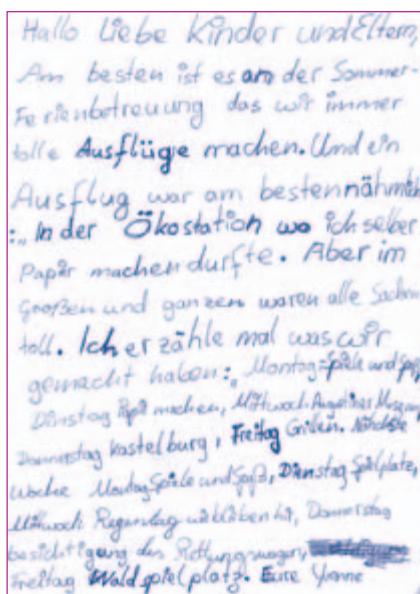 Hallo Liebe Kinder und Eltern,
Am besten ist es an der Sommer-
Ferienbetreuung das wir immer
tolle Ausflüge machen. Und ein
Ausflug war am besten nähmlich
:„ In der Ökostation wo ich selber
Papier machen durfte. Aber im
Großen und ganzen waren alle Sachen
toll. Ich erzähle mal was wir
gemacht haben:„ Montag=Spiele und Spaß
Dinstag Papir machen, Mittwoch Augustiner Museum,
Donnerstag Kastelburg, Freitag Grilen. Nächste
Woche Montag Spiele und Spaß, Dienstag Spielplatz,
Mittwoch Regentag wir blieben hir, Donnerstag
besichtigung des Rettungswagen,
Freitag Waldspielplatz. Eure Yvonne